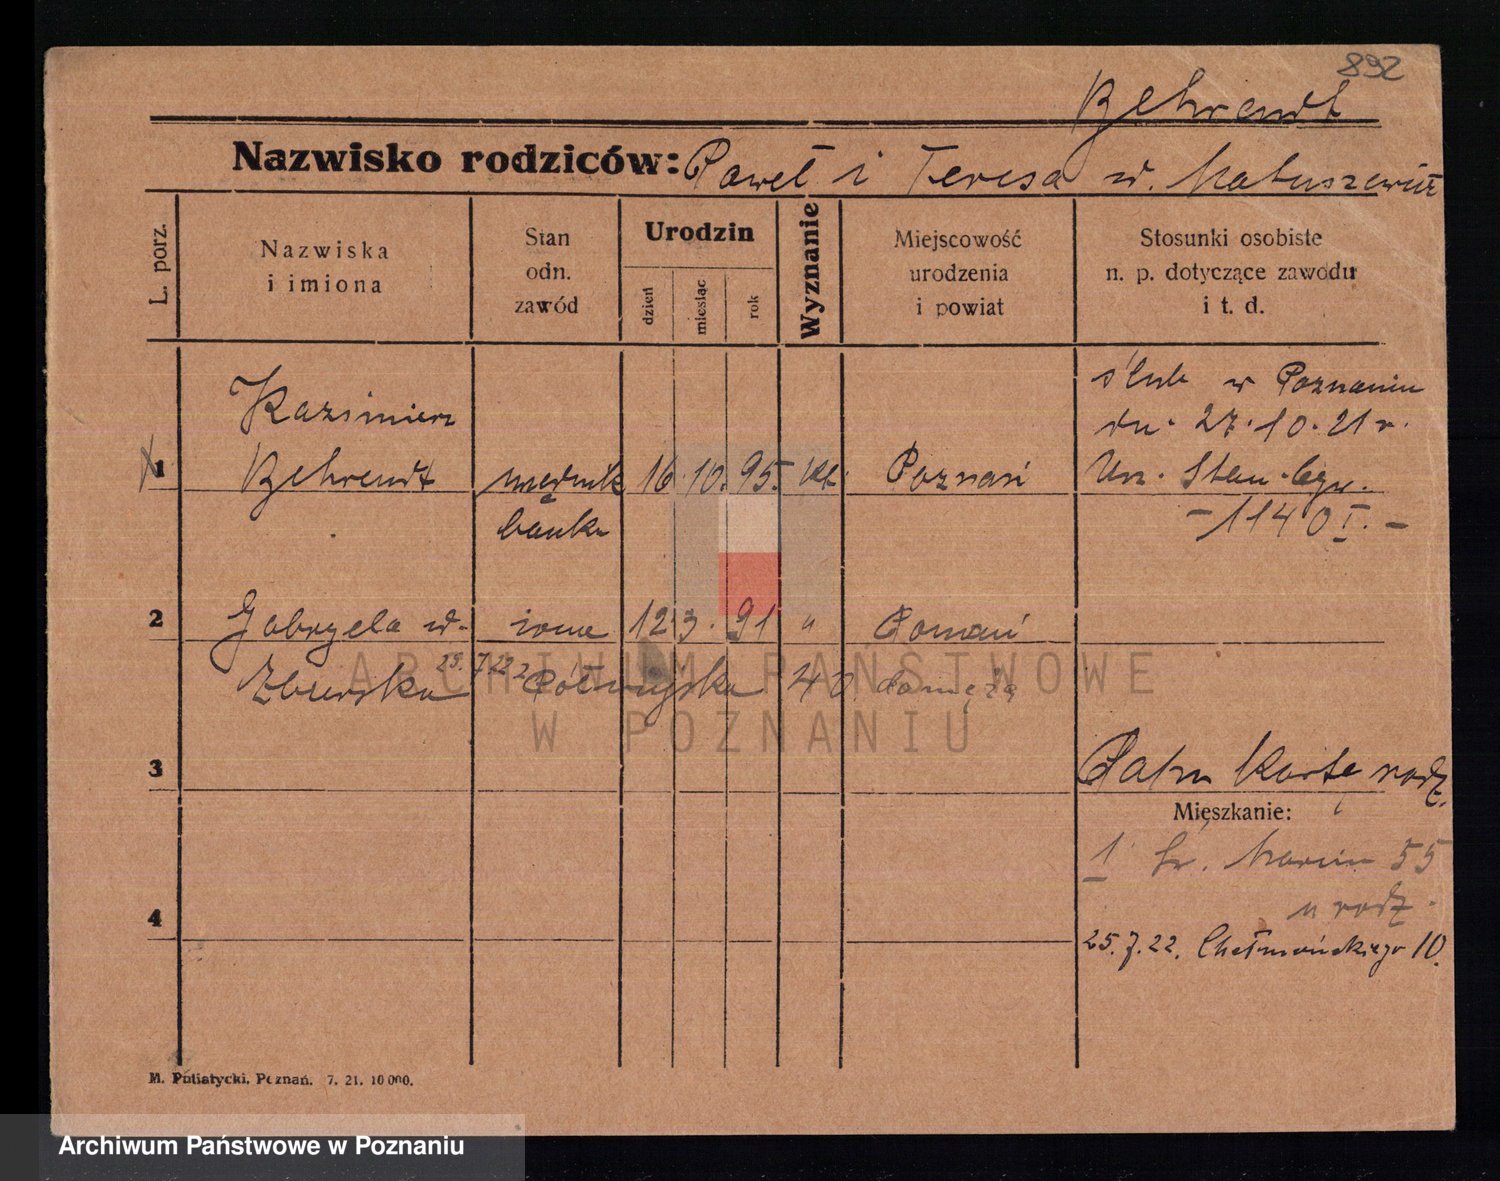 892
Behrendt
Nazwisko rodziców: Paweł i Teresa w. Matuszewicz
L. porz.
Nazwiska
i imiona
Stan
odn.
zawód
Urodzin
dzień
miesiąc
rok
Wyznanie
Miejscowość
urodzenia
i powiat
Stosunki osobiste
n. p. dotyczące zawodu
i t. d.
Kazimierz
ślub w Poznaniu
dn. 27.10.21 r.
1 Behrendt urzędnik 16. 10. 95. kt. Poznań Urz. Stan. Cyw.
bank. - 1140 I. -
2 Gabryela w. żona 12 3. 91 " Poznań
25. 7. 22 Półwiejska 40 do męża
3
Patrz Karta rodz.
Mieszkanie:
1 św. Marcin 55
u rodz.
4
25. 7. 22. Chełmońskiego 10.
M. Putiatycki, Poznań. 7. 21. 10 000.
ARCHIWUM PAŃSTWOWE
W POZNANIU
Archiwum Państwowe w Poznaniu